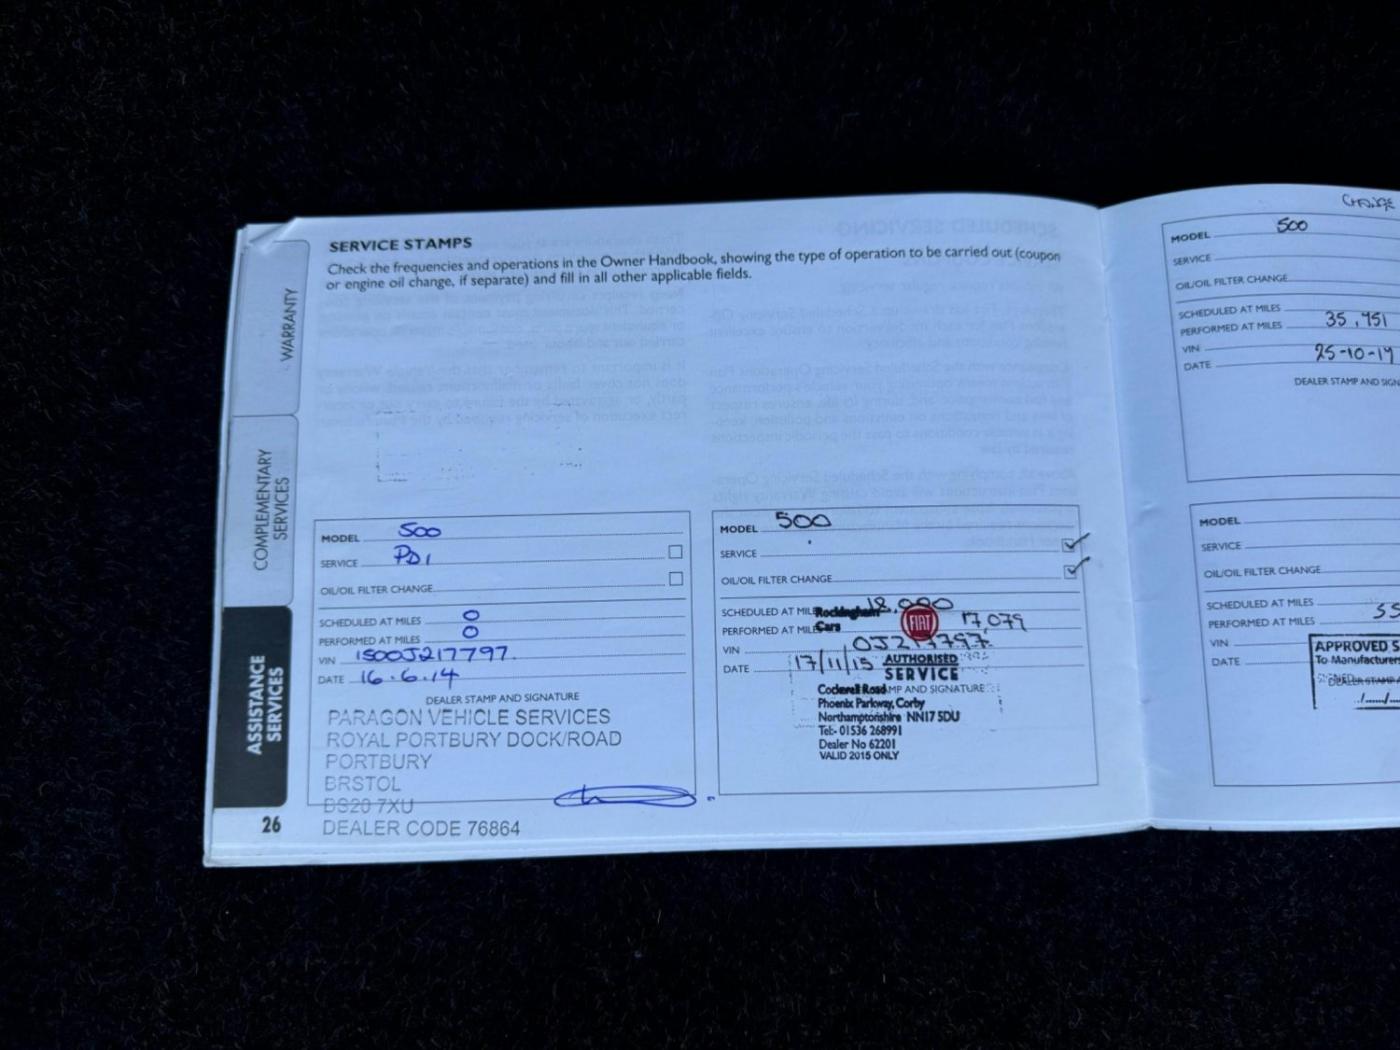 SERVICE STAMPS
Check the frequencies and operations in the Owner Handbook, showing the type of operation to be carried out (coupon
or engine oil change, if separate) and fill in all other applicable fields.
WARRANTY
COMPLEMENTARY
SERVICES
ASSISTANCE
SERVICES
MODEL 500
SERVICE PDI
OIL/OIL FILTER CHANGE
SCHEDULED AT MILES 0
PERFORMED AT MILES 0
VIN 1500J217797
DATE 16.6.14
DEALER STAMP AND SIGNATURE
PARAGON VEHICLE SERVICES
ROYAL PORTBURY DOCK/ROAD
PORTBURY
BRSTOL
BS20 7XU
DEALER CODE 76864
26
MODEL 500
SERVICE
OIL/OIL FILTER CHANGE
SCHEDULED AT MIL 18,000
PERFORMED AT MIL 17,079
Rockingham
Cars
FIAT
VIN 0J217797
DATE 17/11/15
AUTHORISED
SERVICE
MP AND SIGNATURE
Coderell Road
Phoenix Parkway, Corby
Northamptonshire NN17 5DU
Tel:- 01536 268991
Dealer No 62201
VALID 2015 ONLY
MODEL 500
SERVICE
OIL/OIL FILTER CHANGE
SCHEDULED AT MILES
PERFORMED AT MILES 35,951
VIN
DATE 25-10-17
DEALER STAMP AND SIGN
MODEL
SERVICE
OIL/OIL FILTER CHANGE
SCHEDULED AT MILES
PERFORMED AT MILES 55
VIN
DATE
APPROVED S
To Manufacturers